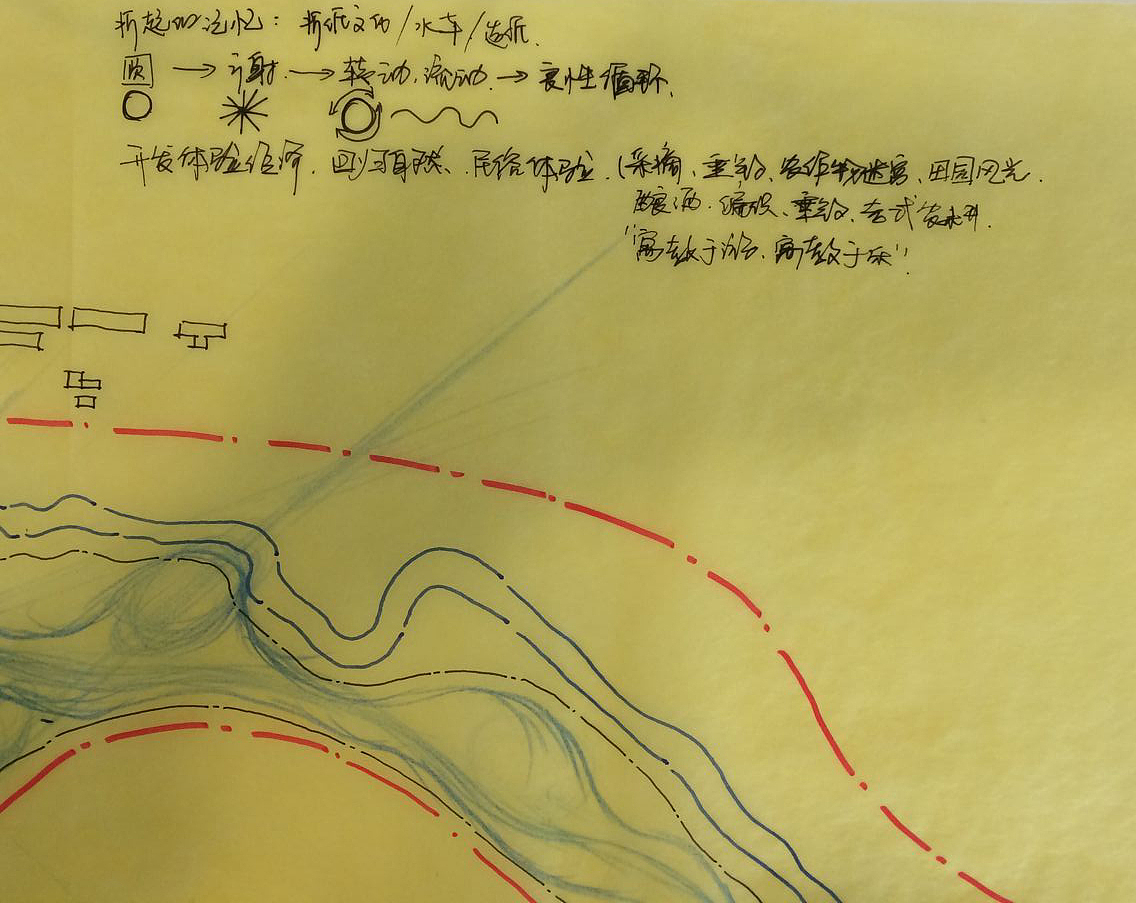 折起的记忆：折纸文化/水车/造纸.
圆 → 辐射 → 转动.流动. → 良性循环.
开发体验经济.回归自然、民俗体验.(采摘、垂钓、农作物迷宫、田园风光.
酿酒.编织、垂钓、古式农水利.
"寓教于游、寓教于乐".